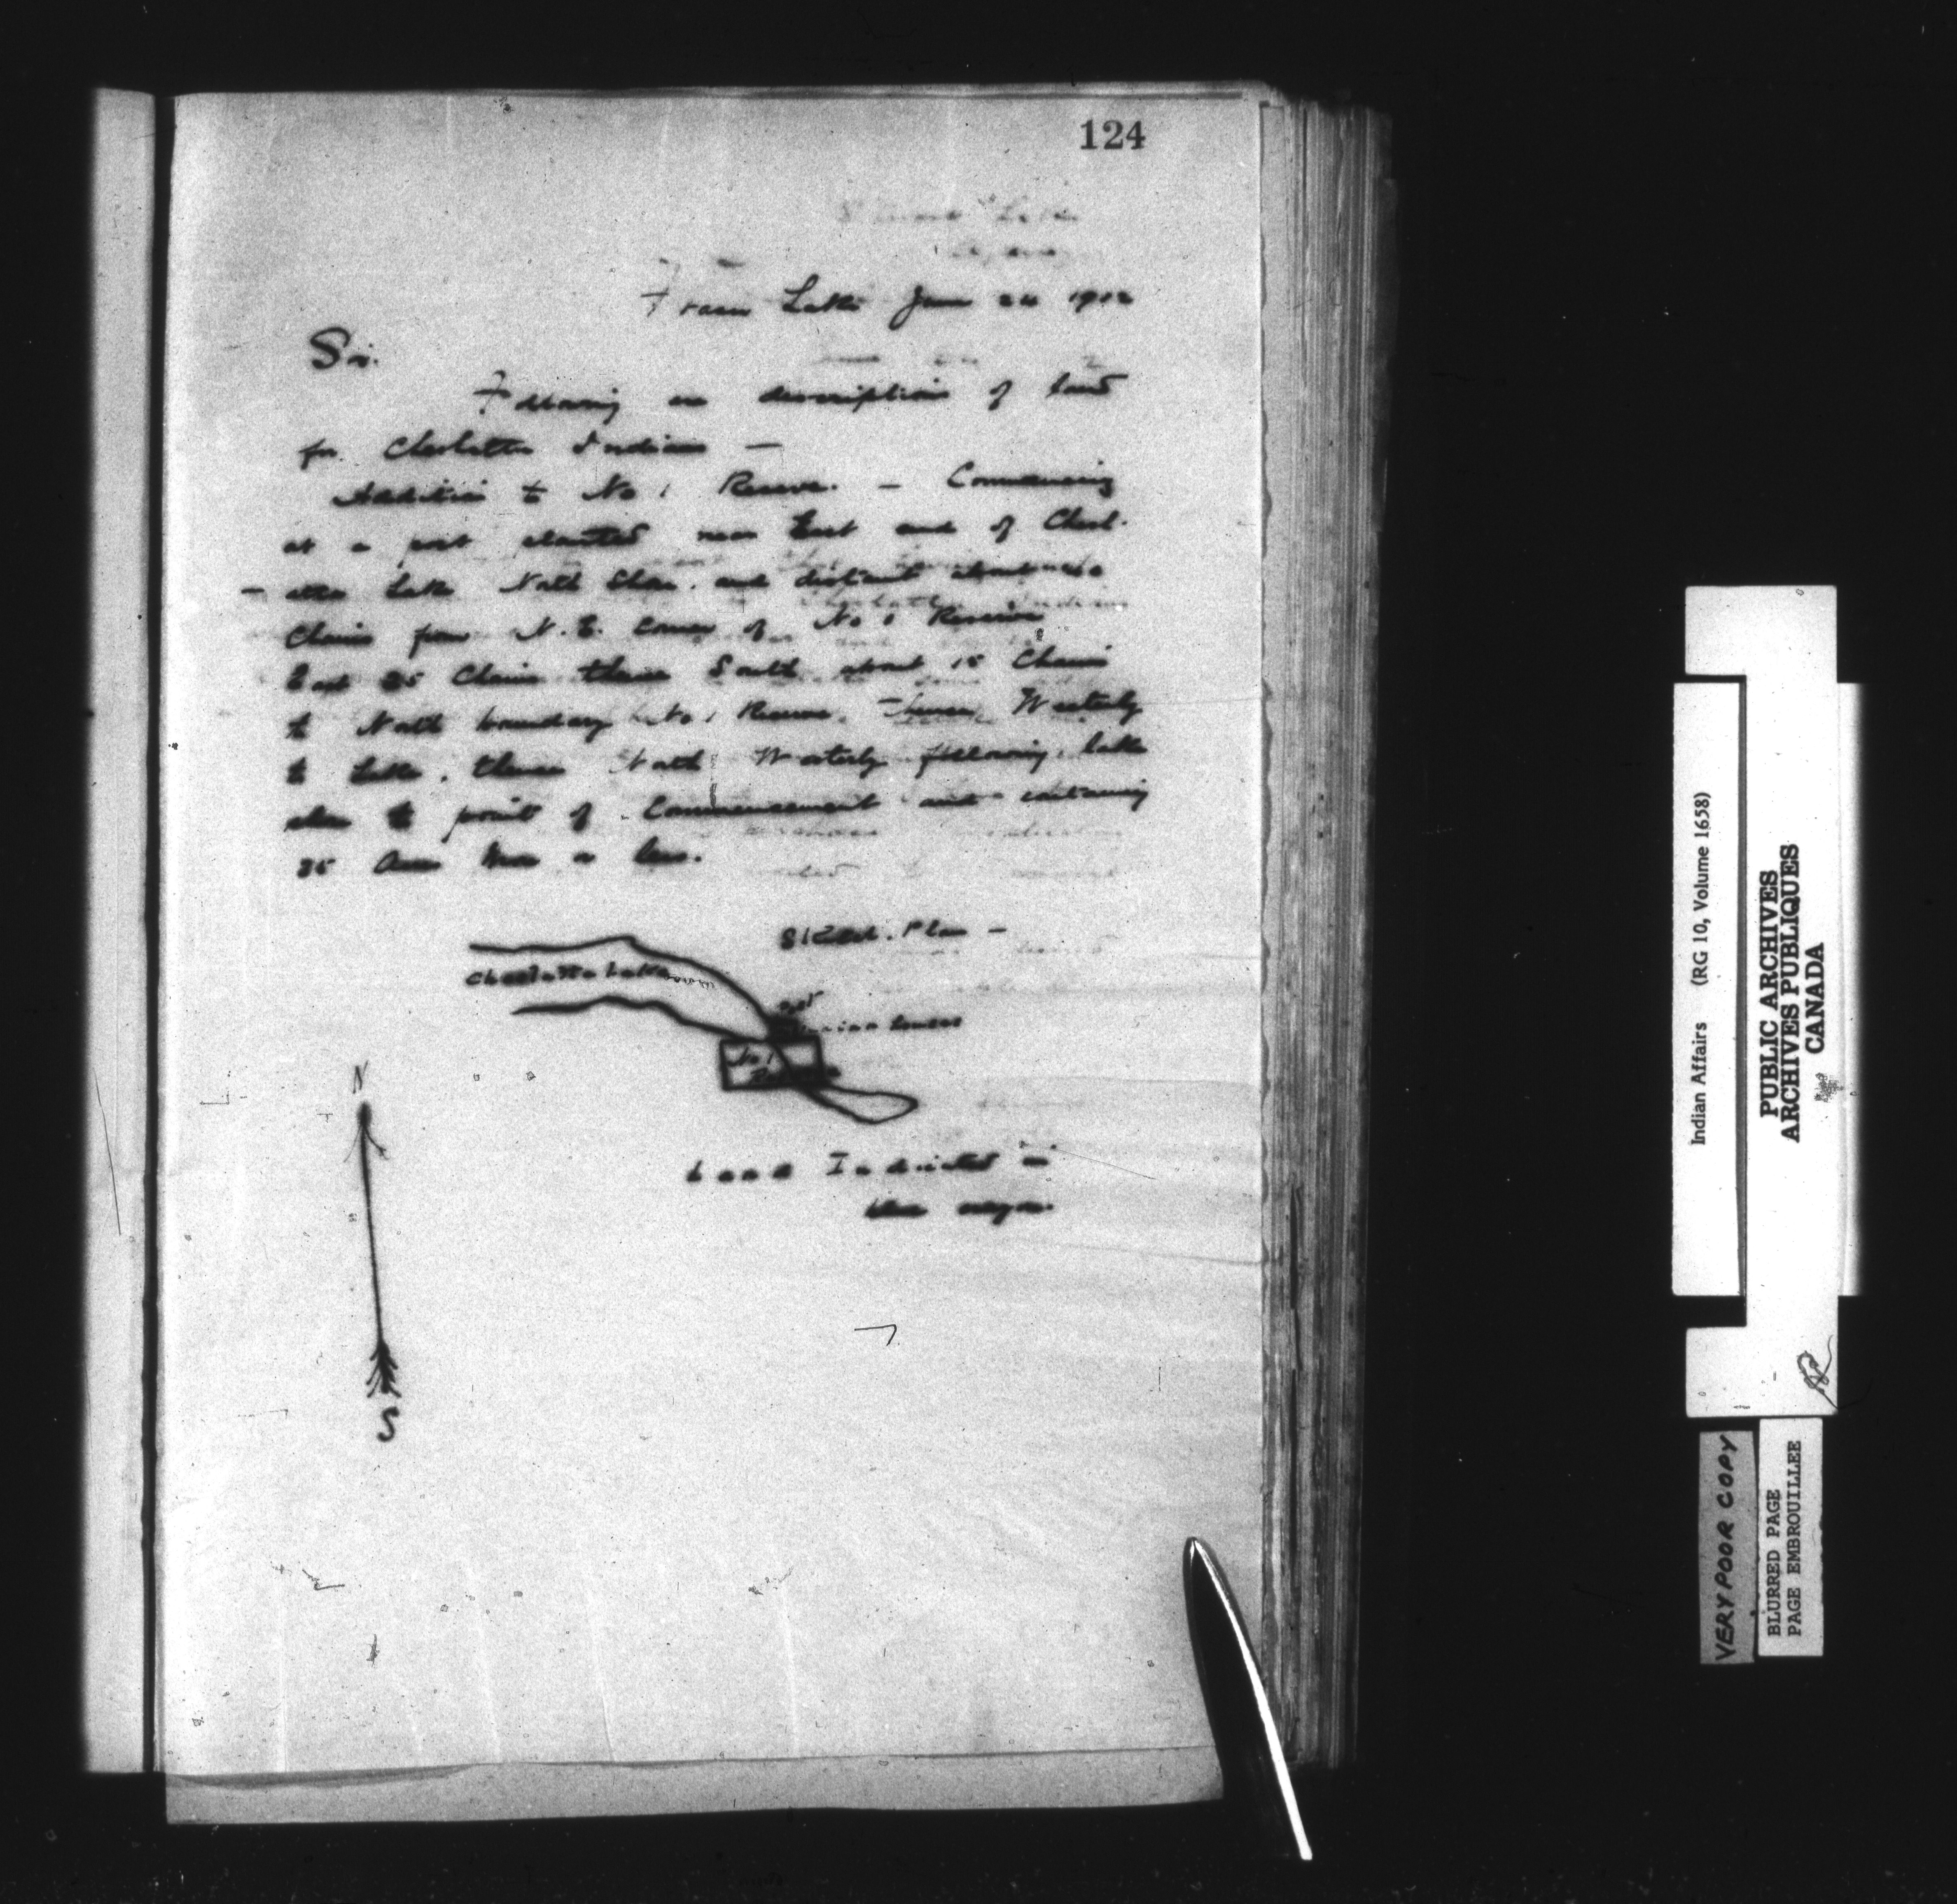 124
Lake June 24 1902
Sir.
Following are description of land
for Cheslatta Indians —
Addition to No 1 Reserve. — Commencing
at a post planted near East end of Chesl-
- atta Lake North Shore. and distant about
Chains from N. E. Corner of No 1 Reserve
East 25 Chains thence South about 15 Chains
to North boundary No 1 Reserve. Thence Westerly
to Lake. thence North Westerly following lake
shore to point of Commencement and containing
35 Acres More or less.
Sketch. Plan —
Cheslatta Lake
Post
Indian houses
No 1
Reserve
N
S
Land Indicated in
Indian Affairs (RG 10, Volume 1658)
PUBLIC ARCHIVES
ARCHIVES PUBLIQUES
CANADA
VERY POOR COPY
BLURRED PAGE
PAGE EMBROUILLEE